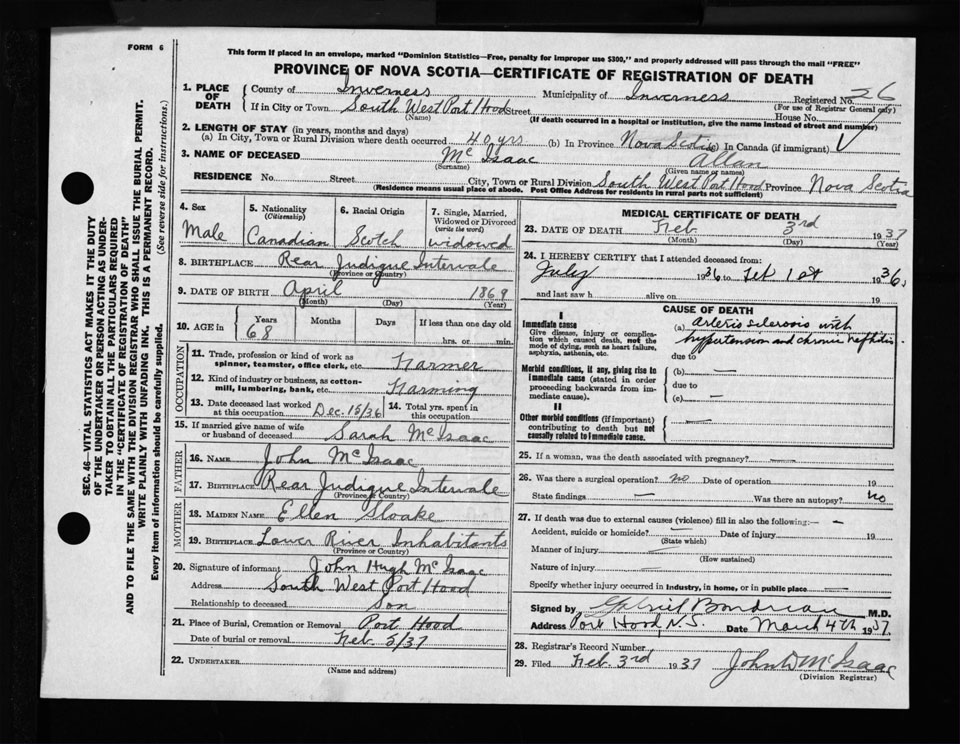 FORM 6
This form if placed in an envelope, marked "Dominion Statistics—Free, penalty for improper use $300," and properly addressed will pass through the mail "FREE"
PROVINCE OF NOVA SCOTIA—CERTIFICATE OF REGISTRATION OF DEATH
SEC. 46—VITAL STATISTICS ACT MAKES IT THE DUTY
OF THE UNDERTAKER OR PERSON ACTING AS UNDER-
TAKER TO OBTAIN ALL THE PARTICULARS REQUIRED
IN THE "CERTIFICATE OF REGISTRATION OF DEATH"
AND TO FILE THE SAME WITH THE DIVISION REGISTRAR WHO SHALL ISSUE THE BURIAL PERMIT.
WRITE PLAINLY WITH UNFADING INK. THIS IS A PERMANENT RECORD.
Every item of information should be carefully supplied. (See reverse side for instructions.)
1. PLACE OF DEATH
County of Inverness Municipality of Inverness Registered No. 26
(For use of Registrar General only)
If in City or Town South West Port Hood Street House No.
(Name) (If death occurred in a hospital or institution, give the name instead of street and number)
2. LENGTH OF STAY (in years, months and days)
(a) In City, Town or Rural Division where death occurred 40 yrs (b) In Province Nova Scotia (c) In Canada (if immigrant)
3. NAME OF DECEASED Mc Isaac Allan
(Surname) (Given name or names)
RESIDENCE No. Street City, Town or Rural Division South West Port Hood Province Nova Scotia
(Residence means usual place of abode. Post Office Address for residents in rural parts not sufficient)
4. Sex 5. Nationality (Citizenship) 6. Racial Origin 7. Single, Married, Widowed or Divorced (write the word)
Male Canadian Scotch widowed
8. BIRTHPLACE Rear Judique Intervale
(Province or Country)
9. DATE OF BIRTH April 1869
(Month) (Day) (Year)
10. AGE in Years Months Days If less than one day old
68 hrs. or min.
OCCUPATION
11. Trade, profession or kind of work as spinner, teamster, office clerk, etc. Farmer
12. Kind of industry or business, as cotton-mill, lumbering, bank, etc. Farming
13. Date deceased last worked at this occupation Dec. 15/36 14. Total yrs. spent in this occupation
15. If married give name of wife or husband of deceased Sarah Mc Isaac
FATHER
16. NAME John Mc Isaac
17. BIRTHPLACE Rear Judique Intervale
(Province or Country)
MOTHER
18. MAIDEN NAME Ellen Sloake
19. BIRTHPLACE Lower River Inhabitants
(Province or Country)
20. Signature of informant John Hugh Mc Isaac
Address South West Port Hood
Relationship to deceased Son
21. Place of Burial, Cremation or Removal Port Hood
Date of burial or removal Feb. 5/37
22. UNDERTAKER
(Name and Address)
MEDICAL CERTIFICATE OF DEATH
23. DATE OF DEATH Feb. 3rd 1937
(Month) (Day) (Year)
24. I HEREBY CERTIFY that I attended deceased from:
July 1936 to Feb 1st 1936,
and last saw h alive on 19
CAUSE OF DEATH
I
Immediate cause
Give disease, injury or complication which caused death, not the mode of dying, such as heart failure, asphyxia, asthenia, etc.
(a) Arterio sclerosis with
hypertension and chronic nephritis.
due to
Morbid conditions, if any, giving rise to immediate cause (stated in order proceeding backwards from immediate cause).
(b) —
due to
(c) —
II
Other morbid conditions (if important) contributing to death but not causally related to immediate cause. —
25. If a woman, was the death associated with pregnancy? —
26. Was there a surgical operation? no Date of operation 19
State findings — Was there an autopsy? no
27. If death was due to external causes (violence) fill in also the following:— —
Accident, suicide or homicide? Date of injury 19
(State which)
Manner of injury —
(How sustained)
Nature of injury —
Specify whether injury occurred in industry, in home, or in public place —
Signed by Gabriel Boudreau M.D.
Address Port Hood, N.S. Date March 4th 1937.
28. Registrar's Record Number
29. Filed Feb. 3rd 1937 John D McIsaac
(Division Registrar)